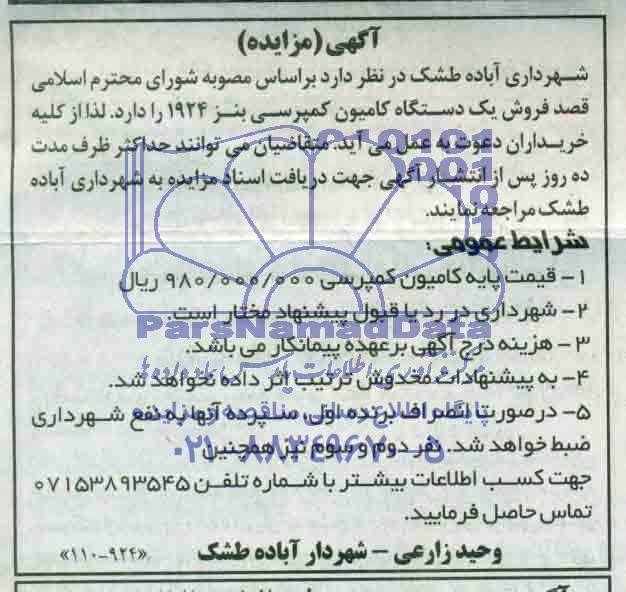 آگهی (مزایده)
شهرداری آباده طشک در نظر دارد براساس مصوبه شورای محترم اسلامی
قصد فروش یک دستگاه کامیون کمپرسی بنز ۱۹۲۴ را دارد. لذا از کلیه
خریداران دعوت به عمل می آید. متقاضیان می توانند حداکثر ظرف مدت
ده روز پس از انتشار آگهی جهت دریافت اسناد مزایده به شهرداری آباده
طشک مراجعه نمایند.
شرایط عمومی:
۱- قیمت پایه کامیون کمپرسی ۹۸۰/۰۰۰/۰۰۰ ریال
۲- شهرداری در رد یا قبول پیشنهاد مختار است.
ParsNamadData
۳- هزینه درج آگهی برعهده پیمانکار می باشد.
۴- به پیشنهادات مخدوش ترتیب اثر داده نخواهد شد.
۵- در صورت انصراف برنده اول، سپرده آنها به نفع شهرداری
ضبط خواهد شد. نفر دوم و سوم نیز همچنین
۰۲۱-۸۸۳۴۹۶۷۰-۵
جهت کسب اطلاعات بیشتر با شماره تلفن ۰۷۱۵۳۸۹۳۵۴۵
تماس حاصل فرمایید.
وحید زارعی - شهردار آباده طشک «۱۱۰-۹۲۴»